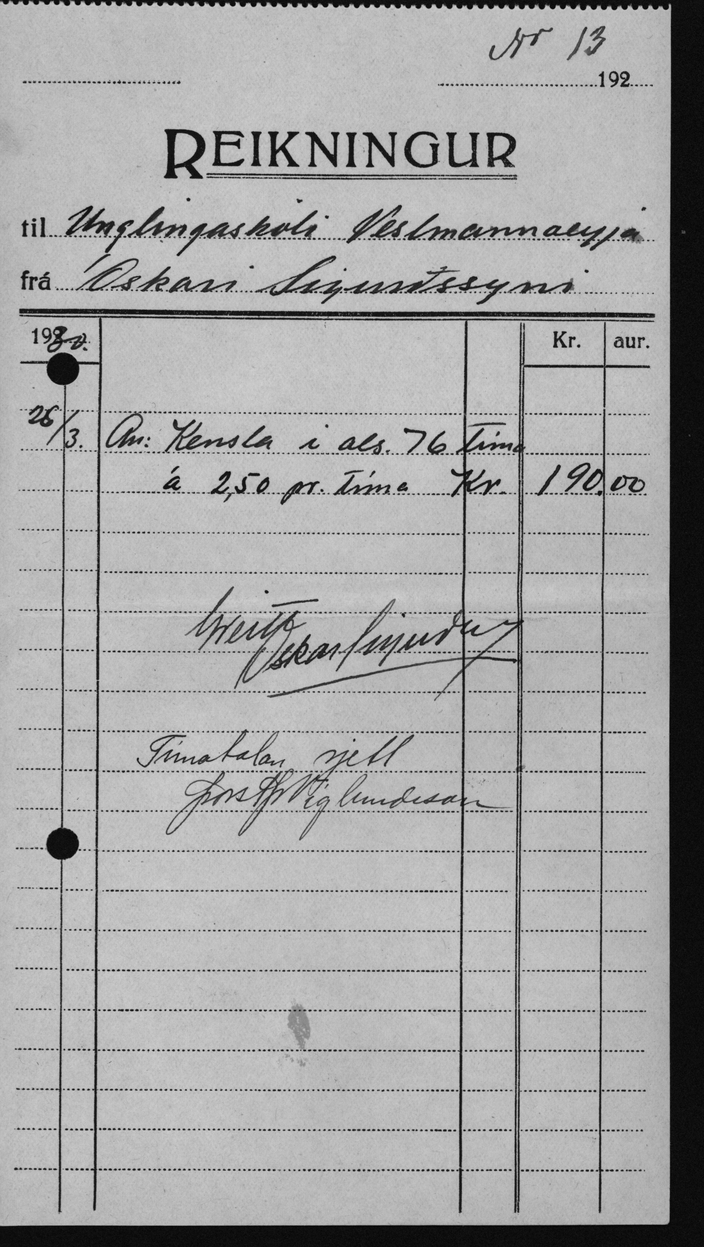 Nr 13
192
REIKNINGUR
til Unglingaskóli Vestmannaeyja
frá Óskari Sigurðssyni
1930. Kr. aur.
26/3. An: Kensla i als. 76 tíma
á 2,50 pr. tíma Kr. 190.00
Óskar Sigurðss
Tímatalan rjett
Þorst Þ Víglundsson